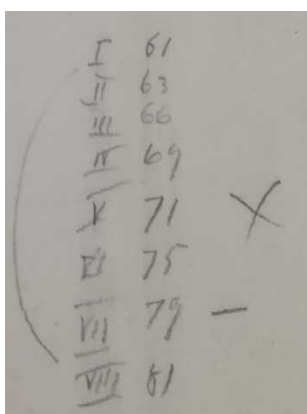 I 61
II 63
III 66
IV 69
V 71 X
VI 75
VII 79 —
VIII 81